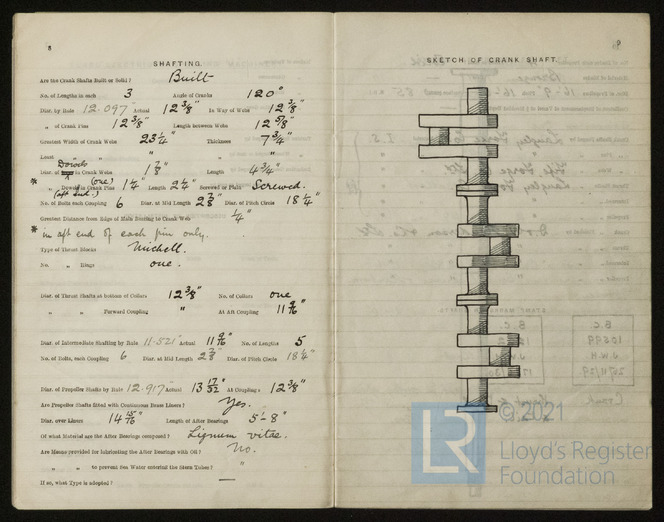 8
SHAFTING.
Are the Crank Shafts Built or Solid? Built
No. of Lengths in each 3 Angle of Cranks 120°
Diar. by Rule 12.097" Actual 12 3/8" In Way of Webs 12 3/8"
„ of Crank Pins 12 3/8" Length between Webs 12 5/8"
Greatest Width of Crank Webs 23 1/4" Thickness 7 3/4"
Least „ „ „ „
Diar. of Dowels in Crank Webs 1 7/8" Length 4 3/4"
* „ Dowels (one) in Crank Pins 1 1/4" Length 2 1/4" Screwed or Plain Screwed.
(aft end.)
No. of Bolts each Coupling 6 Diar. at Mid Length 2 7/8" Diar. of Pitch Circle 18 1/4"
Greatest Distance from Edge of Main Bearing to Crank Web 1/4"
* in aft end of each pin only.
Type of Thrust Blocks Michell.
No. „ Rings one.
Diar. of Thrust Shafts at bottom of Collars 12 3/8" No. of Collars one
„ „ Forward Coupling „ At Aft Coupling 11 9/16"
Diar. of Intermediate Shafting by Rule 11.521" Actual 11 9/16" No. of Lengths 5
No. of Bolts, each Coupling 6 Diar. at Mid Length 2 7/8" Diar. of Pitch Circle 18 1/4"
Diar. of Propeller Shafts by Rule 12.917" Actual 13 17/32" At Couplings 12 3/8"
Are Propeller Shafts fitted with Continuous Brass Liners? Yes.
Diar. over Liners 14 15/16" Length of After Bearings 5'-8"
Of what Material are the After Bearings composed? Lignum vitae.
Are Means provided for lubricating the After Bearings with Oil? No.
„ „ to prevent Sea Water entering the Stern Tubes? "
If so, what Type is adopted? —
9
SKETCH OF CRANK SHAFT.
LR
© 2021
Lloyd's Register
Foundation